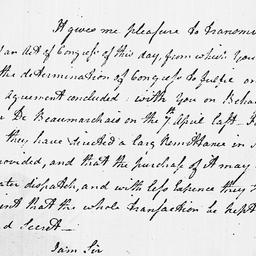 It gives me pleasure to transmi
an Act of Congress of this day, from which you
the determination of Congress to fulfil
agreement concluded with you on Beha
De Beaumarchais on the 7 April last
they have directed a larg Remittance in
provided, and that the purchase of it may
ater dispatch, and with less Expence they
int that the whole transaction be kept
d Secret
I am Sir